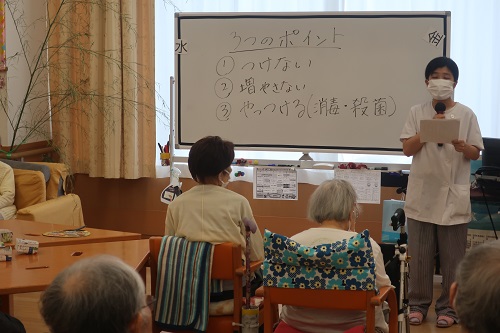 3つのポイント
水
金
① つけない
② 増やさない
③ やっつける(消毒・殺菌)